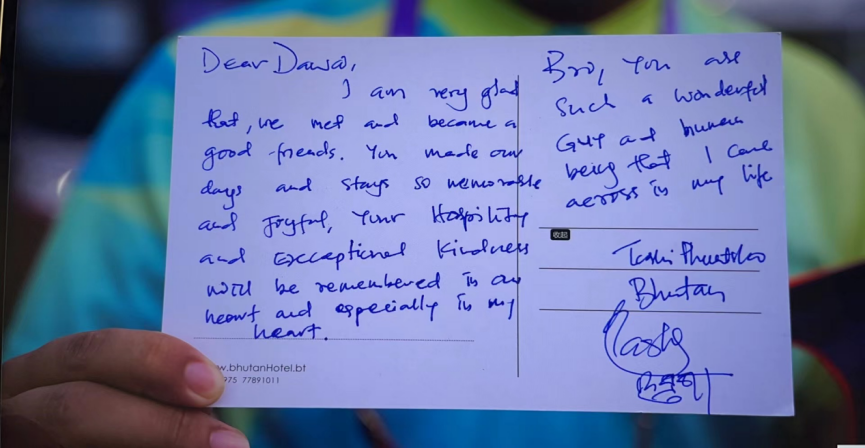 Dear Dawa,
I am very glad
that, we met and became a
good friends. You made our
days and stays so memorable
and Joyful, Your Hospility
and Exceptional Kindness
will be remembered in our
heart and especially in my
heart.
www.bhutanHotel.bt
975 77891011
Bro, You are
Such a wonderful
Guy and human
being that I came
across in my life
收起
Tashi
Bhutan